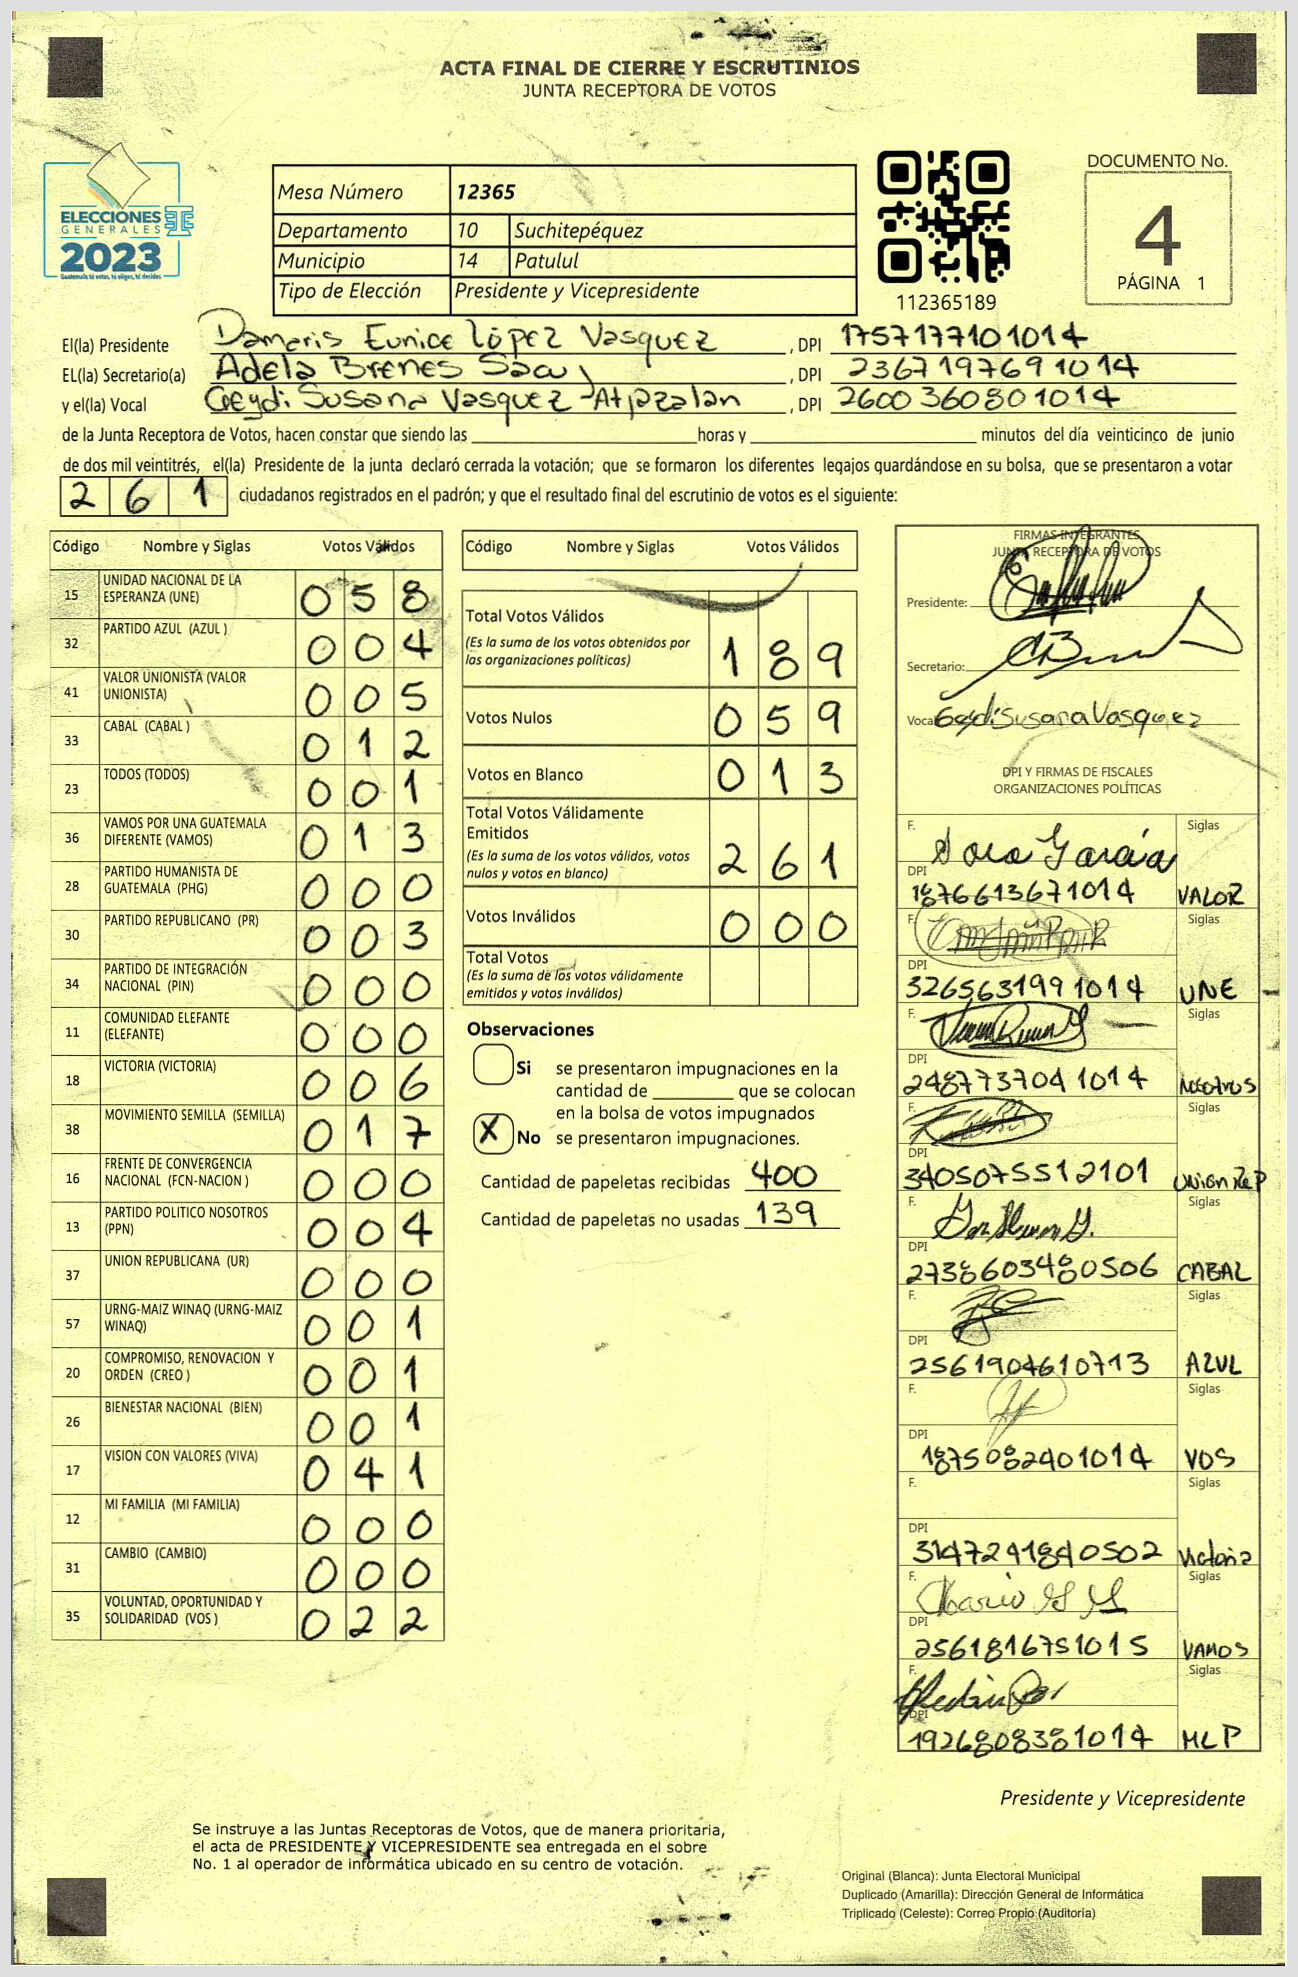 ACTA FINAL DE CIERRE Y ESCRUTINIOS
JUNTA RECEPTORA DE VOTOS
ELECCIONES
GENERALES
2023
Guatemala, tú votas, tú eliges, tú decides
Mesa Número 12365
Departamento 10 Suchitepéquez
Municipio 14 Patulul
Tipo de Elección Presidente y Vicepresidente
112365189
DOCUMENTO No.
4
PÁGINA 1
El(la) Presidente Damaris Eunice López Vasquez , DPI 1757177101014
EL(la) Secretario(a) Adela Brenes Sacuj , DPI 2367197691014
y el(la) Vocal Geydi Susana Vasquez Atpazalan , DPI 2600360801014
de la Junta Receptora de Votos, hacen constar que siendo las horas y minutos del día veinticinco de junio
de dos mil veintitrés, el(la) Presidente de la junta declaró cerrada la votación; que se formaron los diferentes legajos guardándose en su bolsa, que se presentaron a votar
261 ciudadanos registrados en el padrón; y que el resultado final del escrutinio de votos es el siguiente:
Código Nombre y Siglas Votos Válidos
15 UNIDAD NACIONAL DE LA ESPERANZA (UNE) 058
32 PARTIDO AZUL (AZUL ) 004
41 VALOR UNIONISTA (VALOR UNIONISTA) 005
33 CABAL (CABAL ) 012
23 TODOS (TODOS) 001
36 VAMOS POR UNA GUATEMALA DIFERENTE (VAMOS) 013
28 PARTIDO HUMANISTA DE GUATEMALA (PHG) 000
30 PARTIDO REPUBLICANO (PR) 003
34 PARTIDO DE INTEGRACIÓN NACIONAL (PIN) 000
11 COMUNIDAD ELEFANTE (ELEFANTE) 000
18 VICTORIA (VICTORIA) 006
38 MOVIMIENTO SEMILLA (SEMILLA) 017
16 FRENTE DE CONVERGENCIA NACIONAL (FCN-NACION ) 000
13 PARTIDO POLITICO NOSOTROS (PPN) 004
37 UNION REPUBLICANA (UR) 000
57 URNG-MAIZ WINAQ (URNG-MAIZ WINAQ) 001
20 COMPROMISO, RENOVACION Y ORDEN (CREO ) 001
26 BIENESTAR NACIONAL (BIEN) 001
17 VISION CON VALORES (VIVA) 041
12 MI FAMILIA (MI FAMILIA) 000
31 CAMBIO (CAMBIO) 000
35 VOLUNTAD, OPORTUNIDAD Y SOLIDARIDAD (VOS ) 022
Código Nombre y Siglas Votos Válidos
Total Votos Válidos
(Es la suma de los votos obtenidos por las organizaciones políticas) 189
Votos Nulos 059
Votos en Blanco 013
Total Votos Válidamente Emitidos
(Es la suma de los votos válidos, votos nulos y votos en blanco) 261
Votos Inválidos 000
Total Votos
(Es la suma de los votos válidamente emitidos y votos inválidos)
Observaciones
Si se presentaron impugnaciones en la
cantidad de que se colocan
en la bolsa de votos impugnados
X No se presentaron impugnaciones.
Cantidad de papeletas recibidas 400
Cantidad de papeletas no usadas 139
FIRMAS INTEGRANTES
JUNTA RECEPTORA DE VOTOS
Presidente:
Secretario:
Vocal Geydi Susana Vasquez
DPI Y FIRMAS DE FISCALES
ORGANIZACIONES POLÍTICAS
F. Dora García Siglas
DPI 1876613671014 VALOR
F. Siglas
DPI 3265631991014 UNE
F. Siglas
DPI 2487737041014 NOSOTROS
F. Siglas
DPI 3405075512101 Union Rep
F. Siglas
DPI 2738603480506 CABAL
F. Siglas
DPI 2561904610713 AZUL
F. Siglas
DPI 1875082401014 VOS
F. Siglas
DPI 3147241840502 Victoria
F. Siglas
DPI 2561816751015 VAMOS
F. Siglas
DPI 1926808381014 MLP
Presidente y Vicepresidente
Se instruye a las Juntas Receptoras de Votos, que de manera prioritaria,
el acta de PRESIDENTE Y VICEPRESIDENTE sea entregada en el sobre
No. 1 al operador de informática ubicado en su centro de votación.
Original (Blanca): Junta Electoral Municipal
Duplicado (Amarilla): Dirección General de Informática
Triplicado (Celeste): Correo Propio (Auditoría)